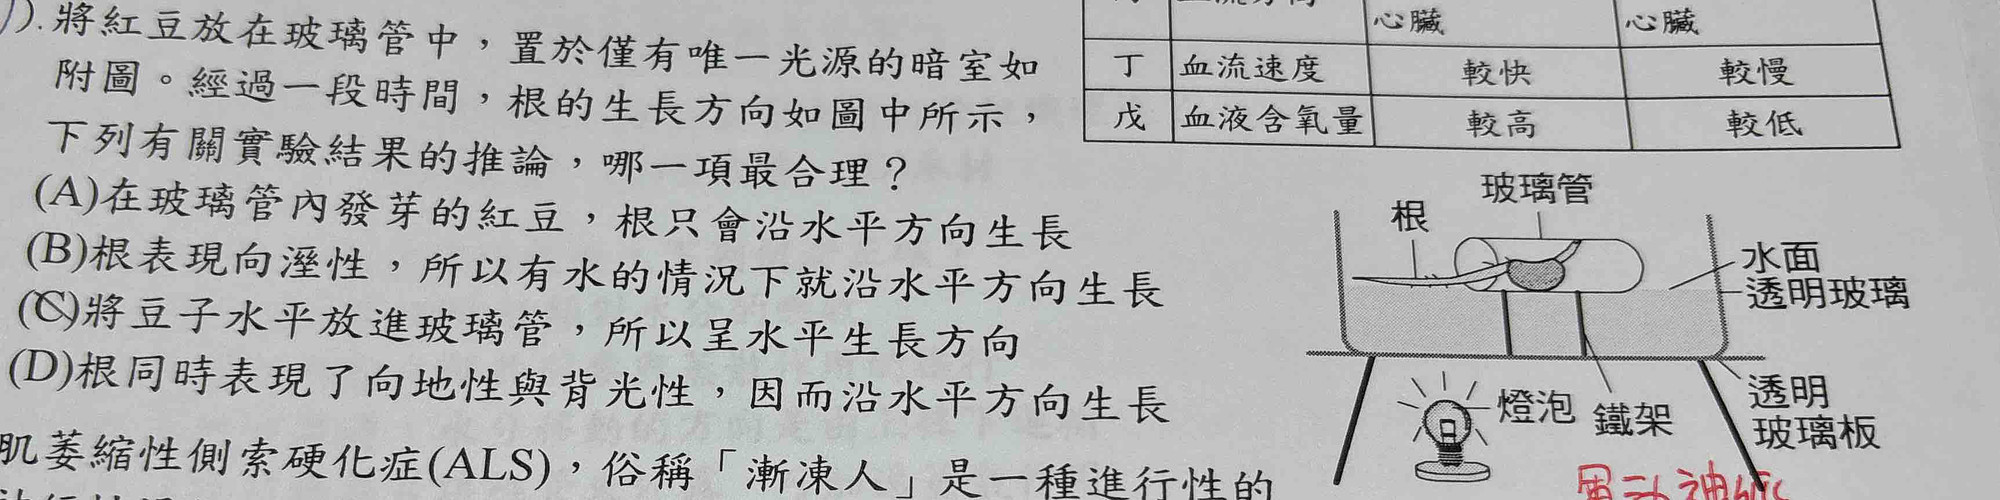 將紅豆放在玻璃管中，置於僅有唯一光源的暗室如
附圖。經過一段時間，根的生長方向如圖中所示，
下列有關實驗結果的推論，哪一項最合理？
(A)在玻璃管內發芽的紅豆，根只會沿水平方向生長
(B)根表現向溼性，所以有水的情況下就沿水平方向生長
(C)將豆子水平放進玻璃管，所以呈水平生長方向
(D)根同時表現了向地性與背光性，因而沿水平方向生長
肌萎縮性側索硬化症(ALS)，俗稱「漸凍人」是一種進行性的
心臟 心臟
丁 血流速度 較快 較慢
戊 血液含氧量 較高 較低
玻璃管
根
水面
透明玻璃
燈泡 鐵架
透明
玻璃板